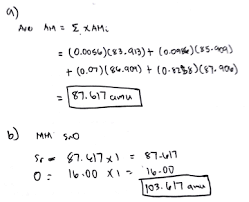 a)
Ave AM = Σ x AMi
= (0.0056)(83.913) + (0.0986)(85.909)
+ (0.07)(86.909) + (0.8258)(87.906)
= 87.617 amu
b) MM SrO
Sr = 87.617 x 1 = 87.617
O = 16.00 x 1 = 16.00
103.617 amu